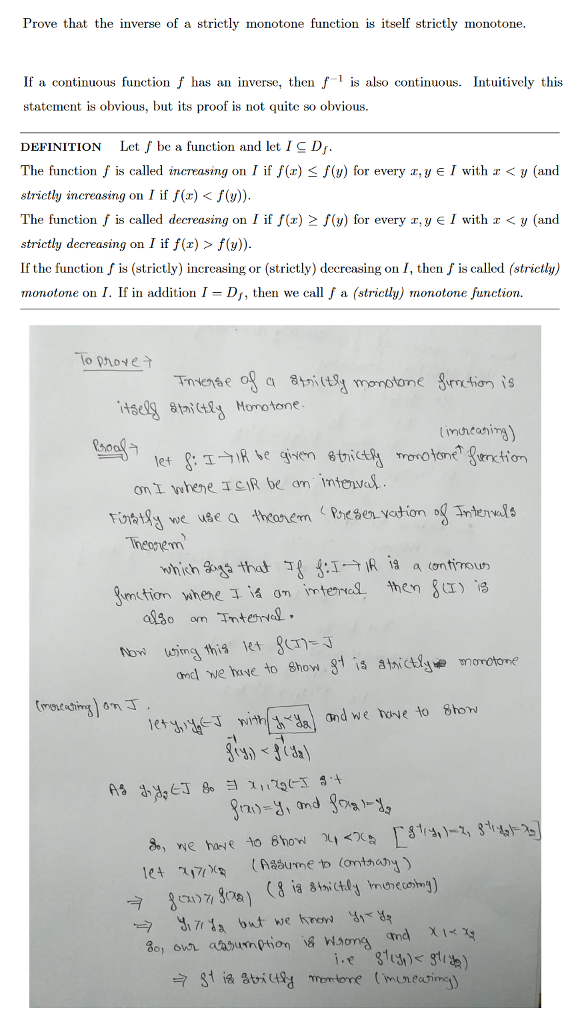 Prove that the inverse of a strictly monotone function is itself strictly monotone.
If a continuous function f has an inverse, then f⁻¹ is also continuous. Intuitively this
statement is obvious, but its proof is not quite so obvious.
DEFINITION Let f be a function and let I ⊆ D_f.
The function f is called increasing on I if f(x) ≤ f(y) for every x, y ∈ I with x < y (and
strictly increasing on I if f(x) < f(y)).
The function f is called decreasing on I if f(x) ≥ f(y) for every x, y ∈ I with x < y (and
strictly decreasing on I if f(x) > f(y)).
If the function f is (strictly) increasing or (strictly) decreasing on I, then f is called (strictly)
monotone on I. If in addition I = D_f, then we call f a (strictly) monotone function.
To prove →
Inverse of a strictly monotone function is
itself strictly Monotone.
(increasing)
Proof → let f: I → IR be given strictly monotone↑ function
on I where I ⊆ IR be an interval.
Firstly we use a theorem ' Preservation of Intervals
Theorem'
which says that If f: I → IR is a continous
function where I is an interval then f(I) is
also an Interval.
Now using this let f(I) = J
and we have to show f⁻¹ is strictly monotone
(increasing) on J.
let y₁, y₂ ∈ J with y₁ < y₂ and we have to show
f⁻¹(y₁) < f⁻¹(y₂)
As y₁, y₂ ∈ J so ∃ x₁, x₂ ∈ I s.t
f(x₁) = y₁ and f(x₂) = y₂
So, we have to show x₁ < x₂ [f⁻¹(y₁) = x₁, f⁻¹(y₂) = x₂]
let x₁ ≥ x₂ (Assume to contrary)
⇒ f(x₁) ≥ f(x₂) (f is strictly increasing)
⇒ y₁ ≥ y₂ but we know y₁ < y₂
So, our assumption is wrong and x₁ < x₂
i.e f⁻¹(y₁) < f⁻¹(y₂)
⇒ f⁻¹ is strictly montone (increasing)